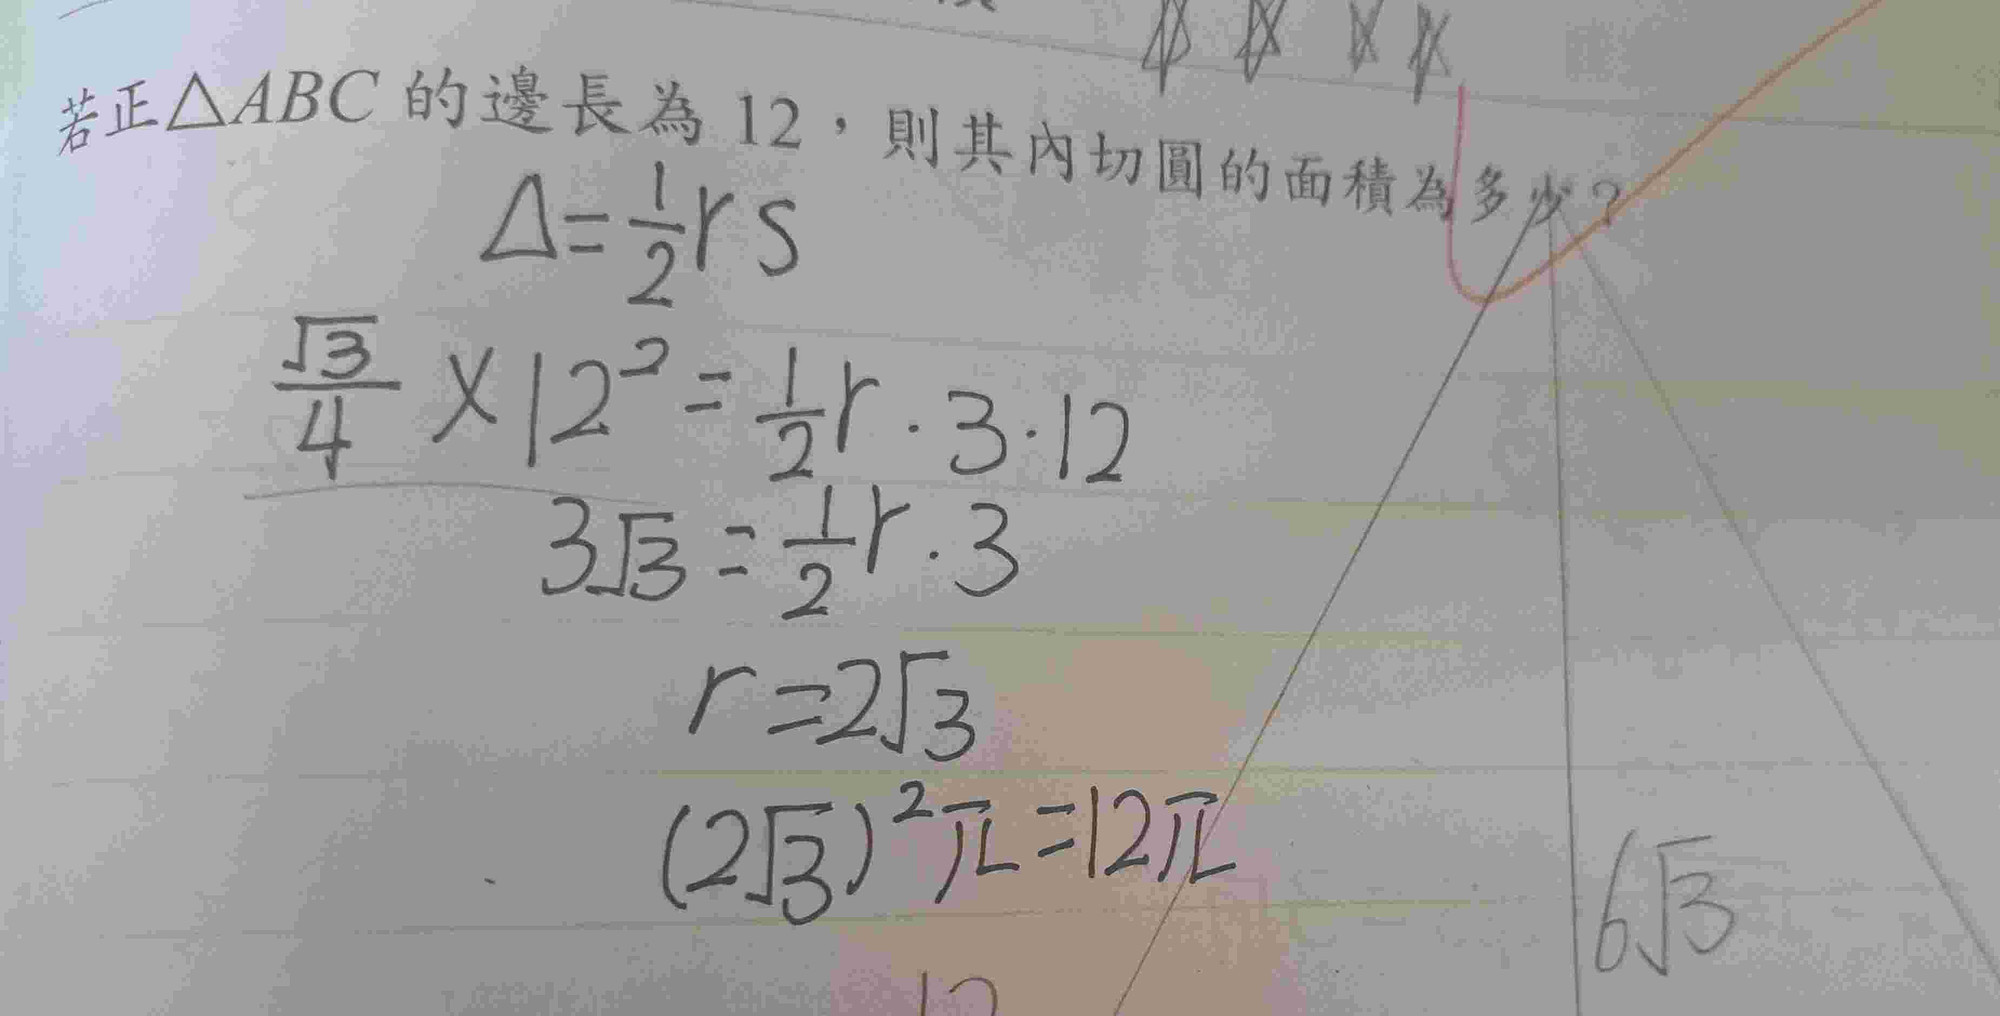 若正△ABC 的邊長為 12，則其內切圓的面積為多少？
△=½rs
√3/4 × 12² = ½r · 3 · 12
3√3 = ½r · 3
r = 2√3
(2√3)²π = 12π
6√3
12